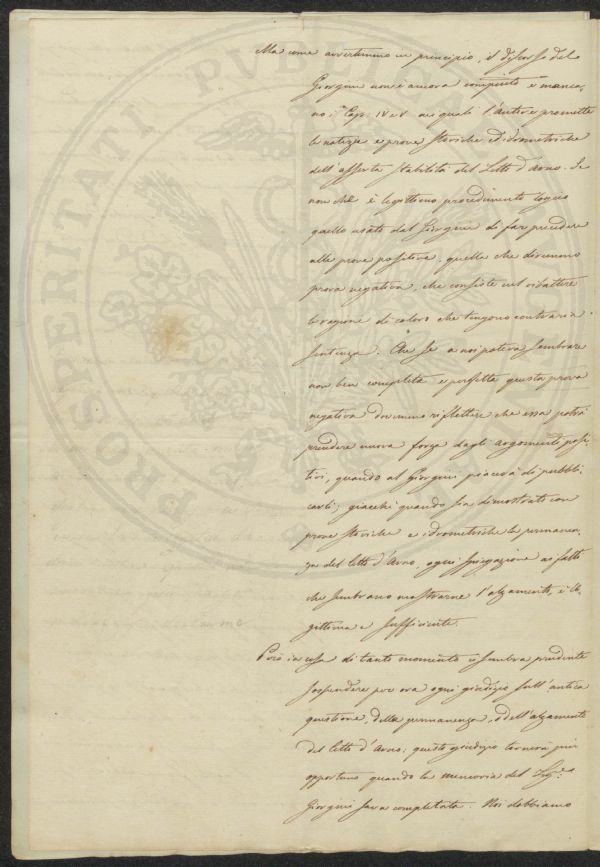 PROSPERITATI PUBLICAE
Ma come avvertimmo in principio, il discorso del
Giorgini non è ancora compiuto e manca,
no i Cap: IV e V nei quali l'Autore promette
le notizie e prove storiche ed idrometriche
dell'asserta stabilità del Letto d'Arno. Se
non che è legittimo procedimento logico
quello usato dal Giorgini di far precedere
alle prove positive quelle che diremmo
prova negativa, che consiste nel ribattere
le ragione di coloro che tengono contraria
sentenza. Che se a noi poteva sembrare
non ben completa e perfetta questa prova
negativa dovremo riflettere che essa potrà
prendere nuova forza dagli argomenti posi-
tivi, quando al Giorgini piacerà di pubbli
carli; giacchè quando sia dimostrata con
prove storiche e idrometriche la permanen-
za del letto d'Arno, ogni spiegazione ai fatti
che sembrano mostrarne l'alzamento, è le-
gittima e sufficiente.
Però in cosa di tanto momento ci sembra prudente
sospendere per ora ogni giudizio sull'antica
questione, della permanenza, o dell'alzamento
del letto d'Arno; questo giudizio tornerà più
opportuno quando la memoria del Sig.e
Giorgini sara completata. Noi dobbiamo